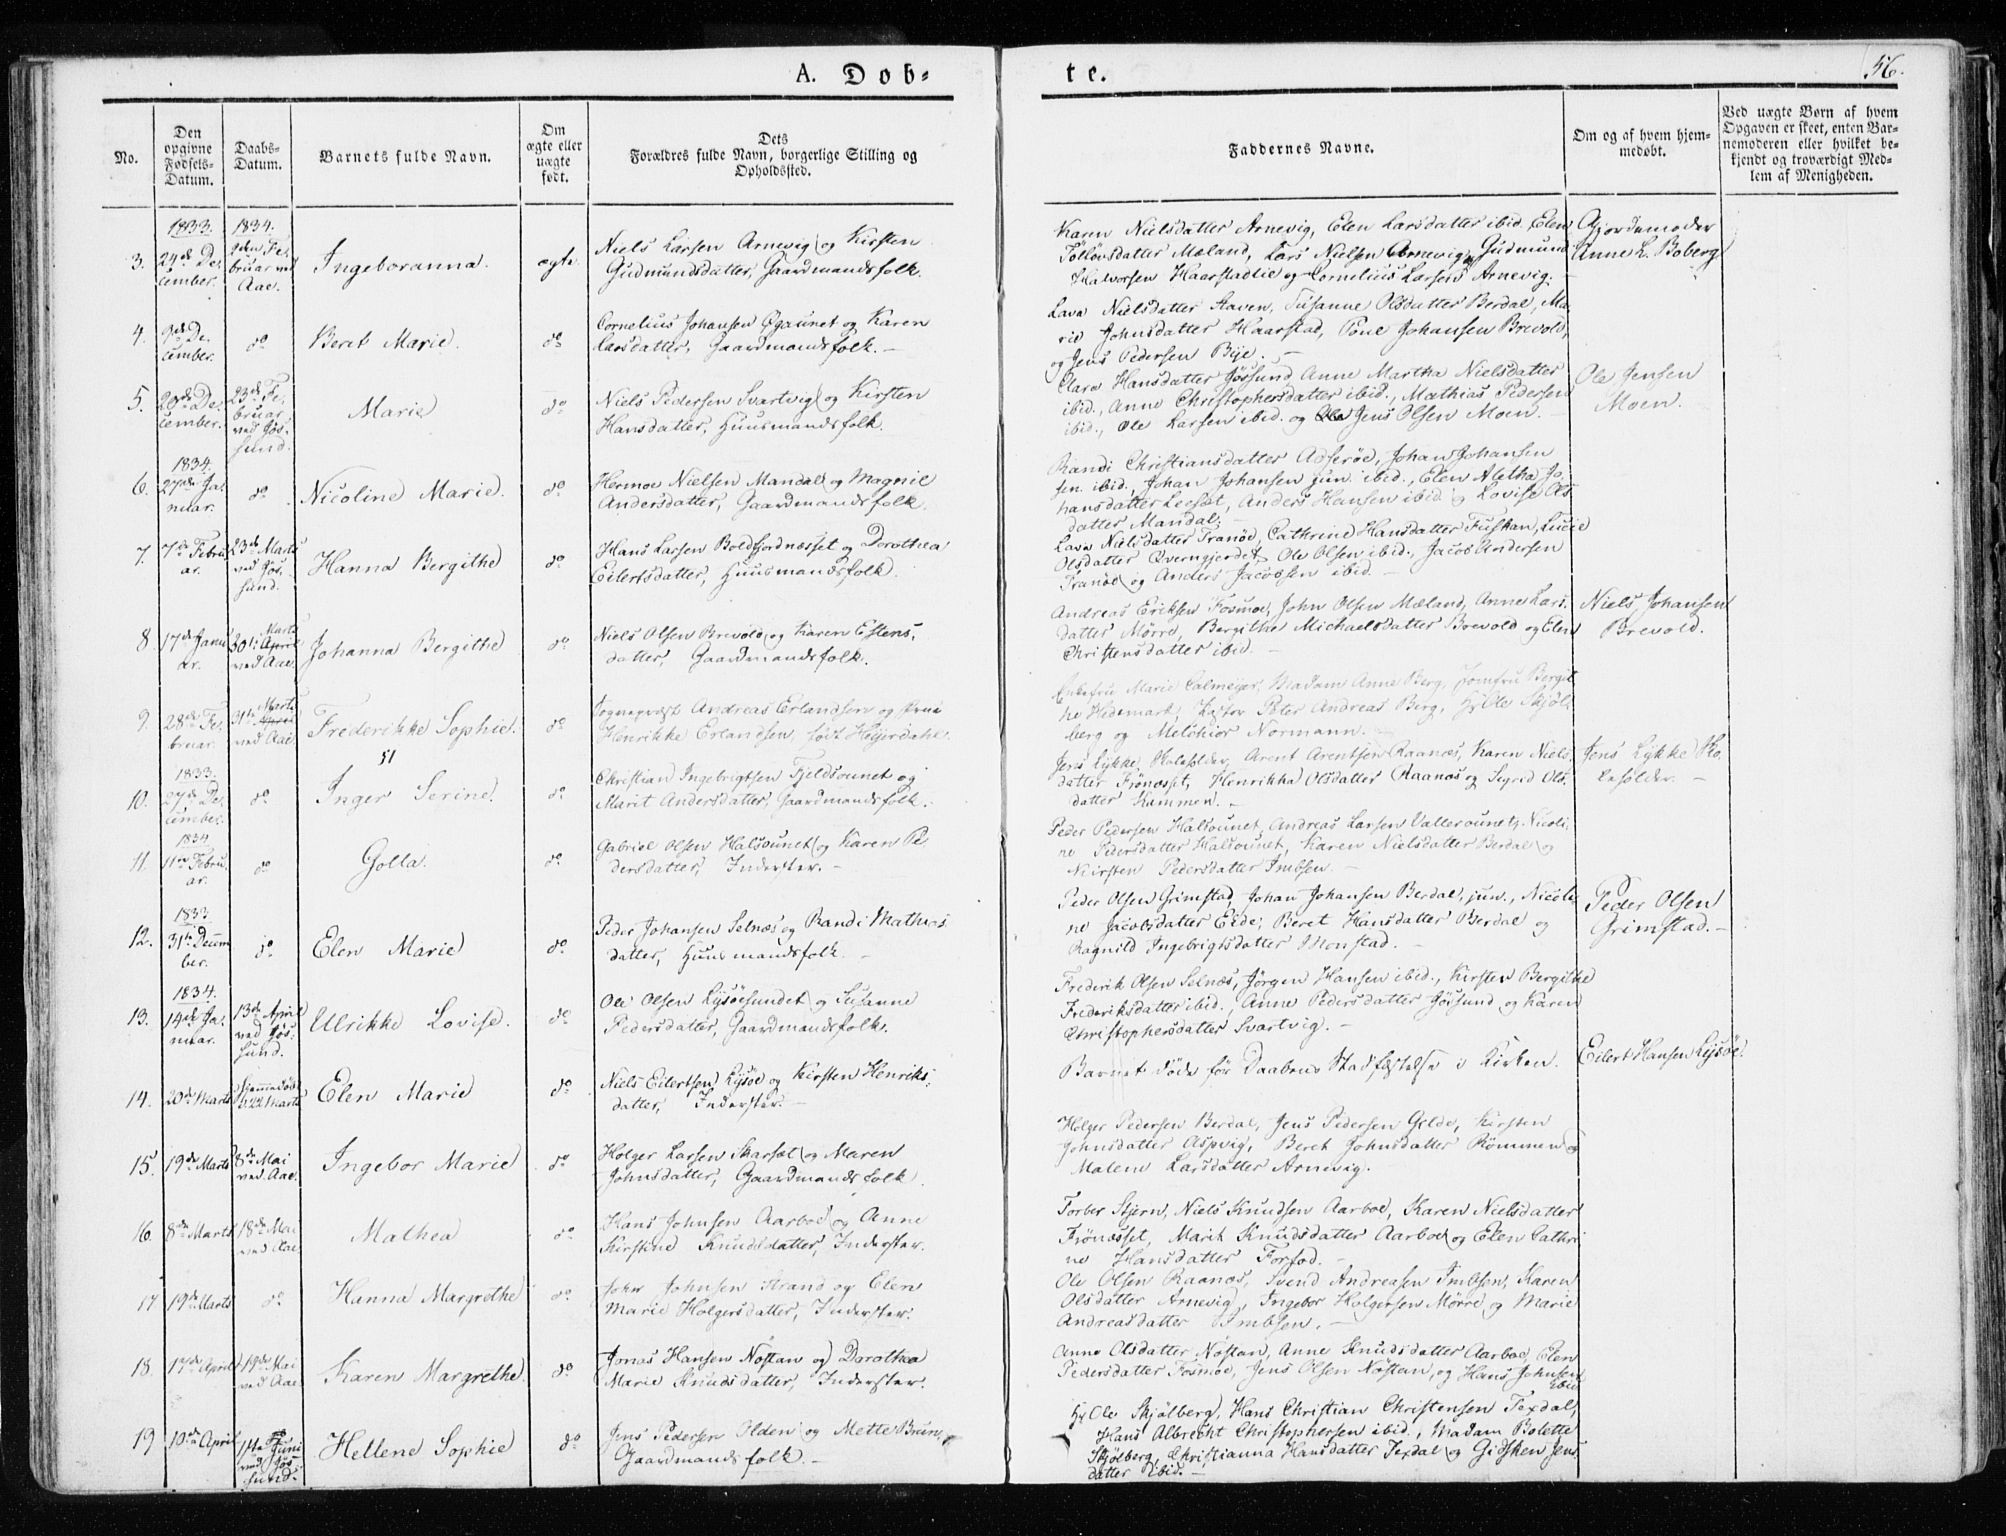 A. Døb-
te.
56.
No.
Den
opgivne
Fødsels-
Datum.
Daabs-
Datum.
Barnets fulde Navn.
Om
ægte eller
uægte
født.
Dets
Forældres fulde Navn, borgerlige Stilling og
Opholdssted.
Faddernes Navne.
Om og af hvem hjem-
medøbt.
Ved uægte Børn af hvem
Opgaven er skeet, enten Bar-
nemoderen eller hvilket be-
kjendt og troværdigt Med-
lem af Menigheden.
3.
1833.
24de De-
cember.
1834.
9den Fe-
bruar ved
Aae.
Ingeboranna.
ægte.
Niels Larsen Arnevig og Kirsten
Gudmundsdatter, Gaardmandsfolk.
Karen Nielsdatter Arnevig, Elen Larsdatter ibid. Elen
Tolløvsdatter Mæland, Lars Nielsen Arnevig, Gudmund
Halvorsen Haarstadlie og Cornelius Larsen Arnevig.
Gjordemoder
Anne L. Boberg
4.
9de De-
cember.
do
Beret Marie.
do
Cornelius Johansen Øgaunet og Karen
Larsdatter, Gaardmandsfolk.
Lava Nielsdatter Staven, Susanne Olsdatter Berdal, Ma-
rie Johnsdatter Haarstad, Tone Johansen Brevold,
og Jens Pedersen Bye.
5.
20de De-
cember.
23de Fe-
bruar
ved Jøs-
sund.
Marie
do
Niels Pedersen Svartvig og Kirsten
Hansdatter, Huusmandsfolk.
Clara Hansdatter Jøssund Anne Martha Nielsdatter
ibid., Anne Christophersdatter ibid., Mathias Pedersen
ibid., Ole Larsen ibid. og Jens Olsen Moen.
Ole Jensen
Moen.
6.
1834.
27de Ja-
nuar.
do
Nicoline Marie.
do
Hermoe Nielsen Mandal og Magnil
Andersdatter, Gaardmandsfolk.
Randi Christiansdatter Adserøe, Johan Johansen
sen. ibid, Johan Johansen jun. ibid., Elen Aletha Jo-
hansdatter Leeset, Anders Hansen ibid og Lovise Ols-
datter Mandal.
7.
7de Febru-
ar.
23de Marts
ved Jøs-
sund.
Hanna Bergithe
do
Hans Larsen Boldfjordnæsset og Dorothea
Eilertsdatter, Huusmandsfolk.
Lava Nielsdatter Tranøe, Cathrine Hansdatter Fuskan, Lucie
Olsdatter Qverngjerdet, Ole Olsen ibid., Jacob Andersen
Tranøe og Anders Jacobsen ibid.
8.
17de Janu-
ar.
Marts
30te April
ved Aae.
Johanna Bergithe
do
Niels Olsen Brevold og Karen Estens-
datter, Gaardmandsfolk.
Andreas Eriksen Fosmoe, John Olsen Mæland, Anne Lars-
datter Mørre, Bergithe Michaelsdatter Brevold og Elen
Christensdatter ibid.
Niels Johansen
Brevold.
9.
28de Fe-
bruar.
Marts
31te April
ved Aae.
Frederikke Sophie.
51
do
Sognepræst Andreas Erlandsen og Frue
Henrikke Erlandsen født Heyerdahl.
Enkefru Marie Calmeyer, Madam Anne Berg, Jomfru Bergit-
he Hedemark, Pastor Peter Andreas Berg, Hr Ole Skjøl-
berg og Melchior Normann.
10.
1833.
27de De-
cember.
do
Inger Serine.
do
Christian Ingebrigtsen Fjeldsounet og
Marit Andersdatter, Gaardmandsfolk.
Jens Lykke Skoleholder, Arent Arentsen Raanæs, Karen Niels-
datter Frønæsset, Henrikka Olsdatter Raanæs og Segrid Ols-
datter Kammen.
Jens Lykke Sko-
leholder.
11.
1834
11te Febru-
ar.
do
Golla.
do
Gabriel Olsen Halsounet og Karen Pe-
dersdatter, Inderster.
Peder Pedersen Halsounet, Andreas Larsen Vallersounet, Nicoli-
ne Pedersdatter Halsounet, Karen Nielsdatter Berdal og
Kiirsten Pedersdatter Imbsen.
12.
1833.
31te Decem-
ber.
do
Elen Marie
do
Peder Johansen Selnæs og Randi Mathias-
datter, Huusmandsfolk.
Peder Olsen Grimstad, Johan Johansen Berdal, jun., Nicoli-
ne Jacobsdatter Eide, Beret Hansdatter Berdal og
Ragnild Ingebrigtsdatter Monstad.
Peder Olsen
Grimstad.
13.
1834.
14de Ja-
nuar.
13de April
ved Jøs-
sund.
Ulrikke Lovise.
do
Ole Olsen Lysøesundet og Susanne
Pedersdatter, Gaardmandsfolk.
Frederik Olsen Selnæs, Jørgen Hansen ibid., Kirsten Bergithe
Frederiksdatter ibid., Anne Pedersdatter Jøssund og Karen
Christophersdatter Svartvig.
14.
20de Marts
hjemmedøbt
d. 22 Marts
Elen Marie
do
Niels Eilertsen Lysøe og Kirsten Henriks-
datter, Inderster.
Barnet døde før Daabens Stadfæstelse i Kirken.
Eilert Hansen Lysøe.
15.
19de Marts
8de Mai
ved Aae.
Ingebor Marie
do
Holger Larsen Skarsæt og Maren
Johnsdatter, Gaardmandsfolk.
Holger Pedersen Berdal, Jens Pedersen Gilde, Kirsten
Johnsdatter Aspvig, Beret Johnsdatter Rømmen og
Malene Larsdatter Arnevig.
16.
8de Marts
18de Mai
ved Aae.
Mathea
do
Hans Johnsen Aarboe og Anne
Kirstine Knudsdatter, Inderster.
Torber Stjern, Niels Knudsen Aarboe, Karen Nielsdatter
Frønæsset, Marit Knudsdatter Aarboe og Elen Cathri-
ne Hansdatter Forfod.
17
19de Marts
do
Hanna Margrethe
do
John Johnsen Strand og Elen
Marie Holgersdatter, Inderster.
Ole Olsen Raanæs, Svend Andreasen Imbsen, Karen
Olsdatter Arnevig, Ingebor Holgersen Mørre og Marie
Andreasdatter Imbsen.
18.
17de April
19de Mai
ved Aae.
Karen Margrethe.
do
Jonas Hansen Nøstan og Dorothea
Marie Knudsdatter, Inderster.
Anne Olsdatter Nøstan, Anne Knudsdatter Aarboe, Elen
Pedersdatter Fosmoe, Jens Olsen Nøstan, og Hans Johnsen
ibid
19
10de April
1ste Juni
ved Jøs-
sund.
Hellene Sophie
do
Jens Pedersen Ilden og Mette Bruun,
Gaardmandsfolk.
Hr Ole Skjølberg, Hans Christian Christensen Texdal,
Hans Albrecht Christophersen ibid., Madam Bolette
Skjølberg, Christianna Hansdatter Texdal og Gidsken Jens-
datter ibid.